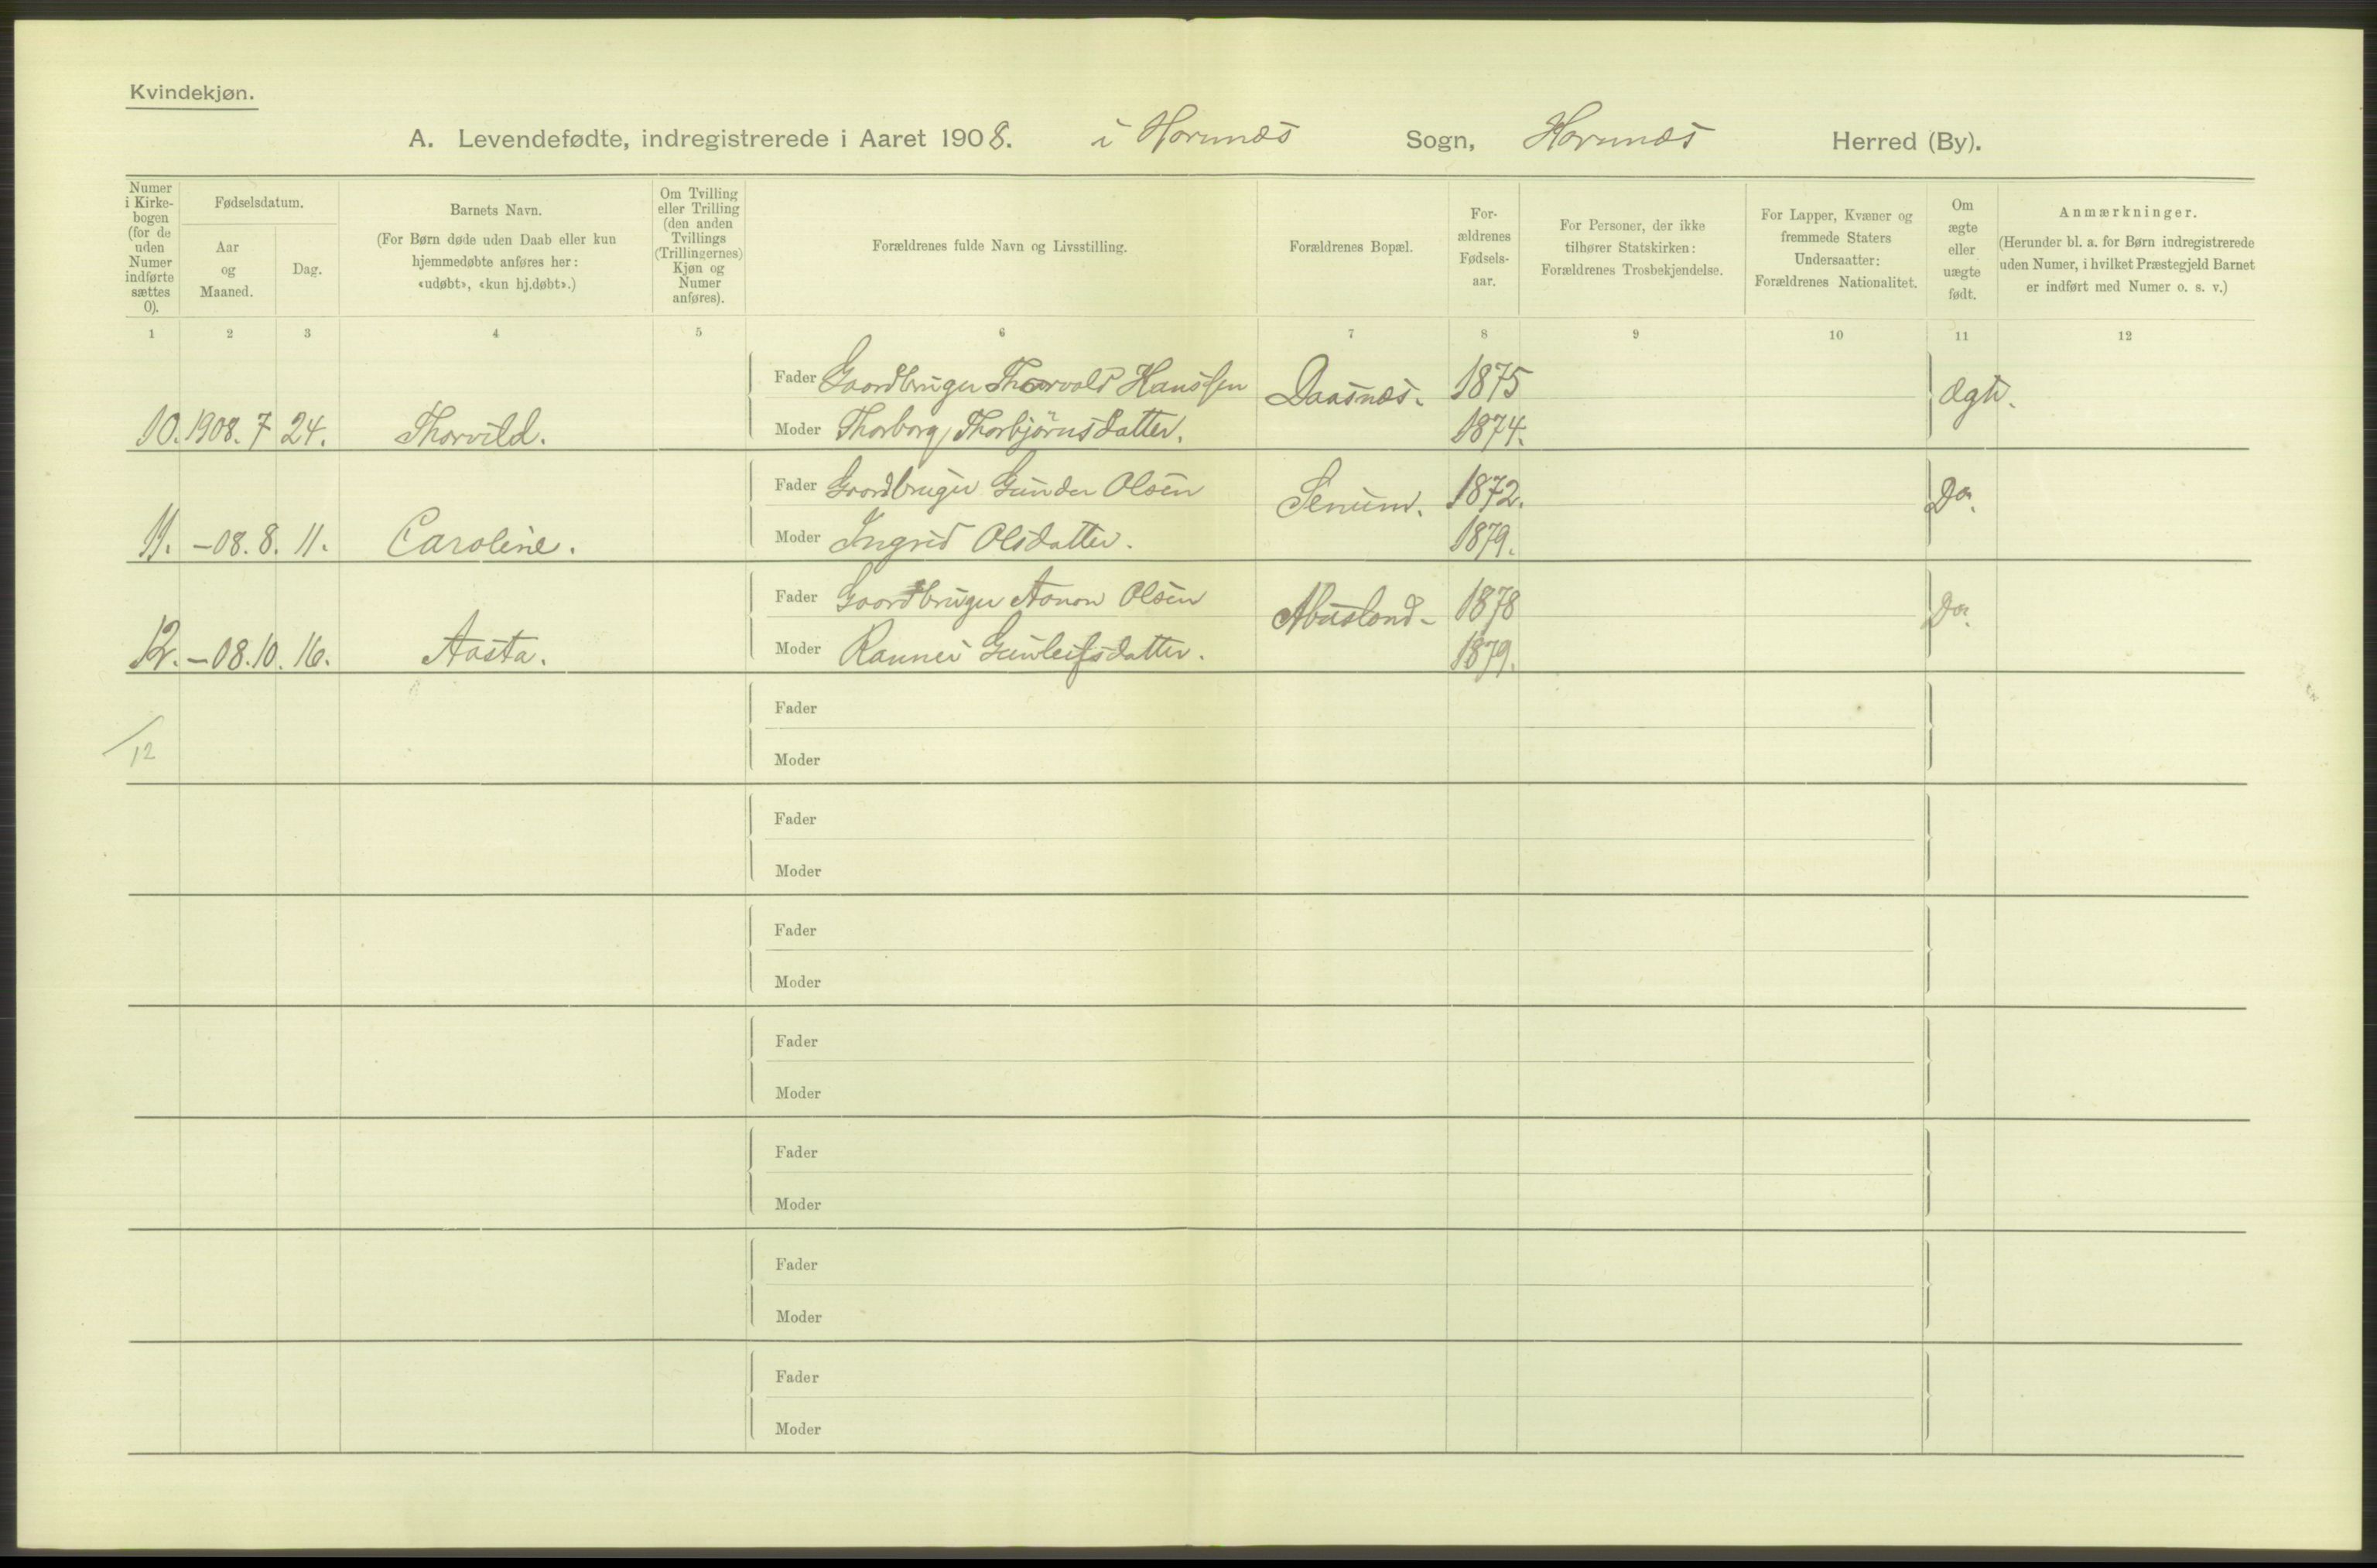 Kvindekjøn.
A. Levendefødte, indregistrerede i Aaret 1908. i Hornnæs Sogn, Hornnæs Herred (By).
Numer i Kirkebogen (for de uden Numer indførte sættes 0).
Fødselsdatum.
Aar og Maaned.
Dag.
Barnets Navn.
(For Børn døde uden Daab eller kun
hjemmedøbte anføres her:
«udøbt», «kun hj.døbt».)
Om Tvilling
eller Trilling
(den anden
Tvillings
(Trillingernes)
Kjøn og
Numer
anføres).
Forældrenes fulde Navn og Livsstilling.
Forældrenes Bopæl.
For-
ældrenes
Fødsels-
aar.
For Personer, der ikke
tilhører Statskirken:
Forældrenes Trosbekjendelse.
For Lapper, Kvæner og
fremmede Staters
Undersaatter:
Forældrenes Nationalitet.
Om
ægte
eller
uægte
født.
Anmærkninger.
(Herunder bl. a. for Børn indregistrerede
uden Numer, i hvilket Præstegjeld Barnet
er indført med Numer o. s. v.)
1 2 3 4 5 6 7 8 9 10 11 12
Fader Gaardbruger Thorvald Hanssen Daasnæs. 1875 Ægte.
10. 1908. 7 24. Thorvild. Moder Thorborg Thorbjörnsdatter. 1874.
Fader Gaardbruger Gunder Olsen Senum. 1872. Do.
11. -08. 8. 11. Caroline. Moder Ingrid Olsdatter. 1879.
Fader Gaardbruger Aanon Olsen Abusland- 1878 Do.
12. -08. 10. 16. Aasta. Moder Rannei Gunleifsdatter. 1879.
Fader
12
Moder
Fader
Moder
Fader
Moder
Fader
Moder
Fader
Moder
Fader
Moder
Fader
Moder